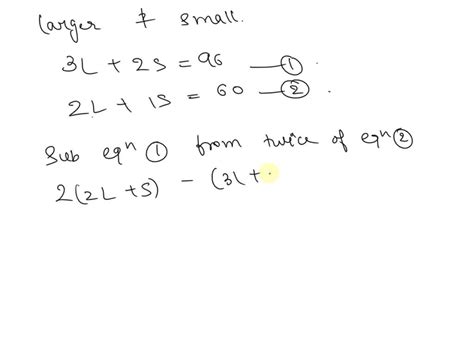 larger & small.
3L + 2S = 96 — ①
2L + 1S = 60 — ② .
Sub eqⁿ ① from twice of eqⁿ ②
2(2L + S) - (3L +